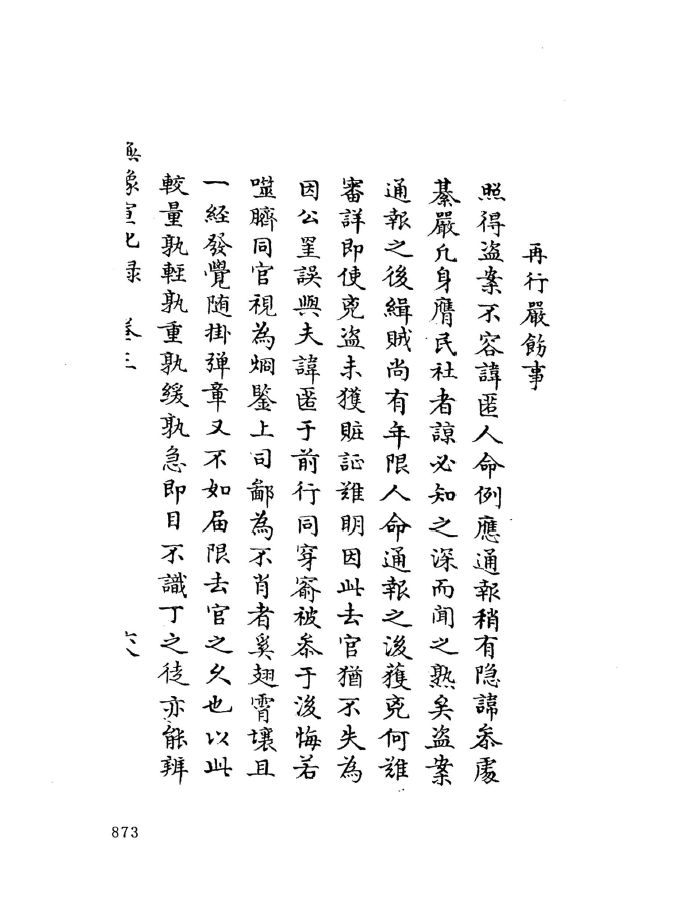 再行嚴飭事
照得盗案不容諱匿人命例應通報稍有隐諱叅處
綦嚴凢身膺民社者諒必知之深而聞之熟矣盗案
通報之後緝賊尚有年限人命通報之後獲兇何難
審詳即使兇盗未獲賍証難明因此去官猶不失為
因公罣誤與夫諱匿于前行同穿窬被叅于後悔若
噬臍同官視為烱鑒上司鄙為不肖者奚翅霄壤且
一經發覺随掛弹章又不如届限去官之久也以此
較量孰輕孰重孰緩孰急即目不識丁之徒亦能辨
撫豫宣化录 卷三 六八
873